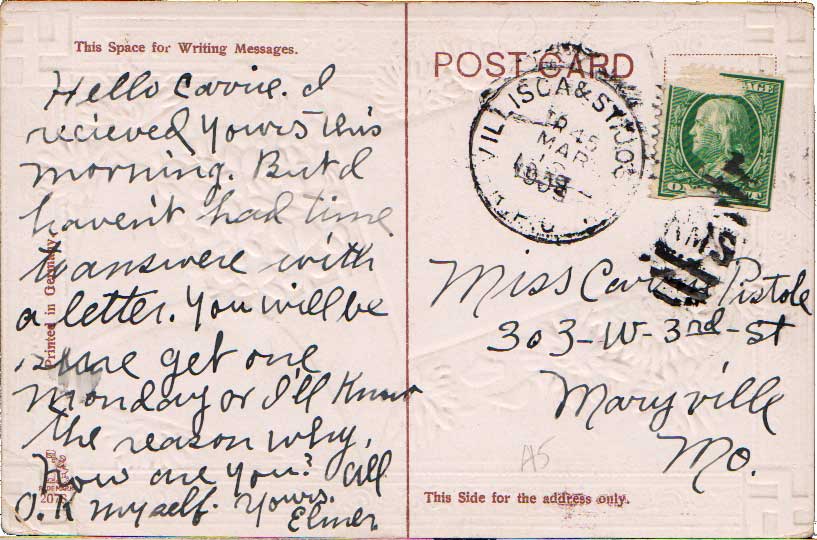 This Space for Writing Messages.
Hello Carrie. I
recieved yours this
morning. But I
haven't had time
to answere with
a letter. You will be
sure get one
Monday or I'll Know
the reason why.
how are you? All
O.K myself. Yours.
Elmer
Printed in Germany
TRADE MARK
POST CARD
VILLISCA & ST. JOE
MAR
1909
R.P.O.
RMS
Miss Carrie Pistole
303-W-3rd-St
Maryville
Mo.
A5
This Side for the address only.